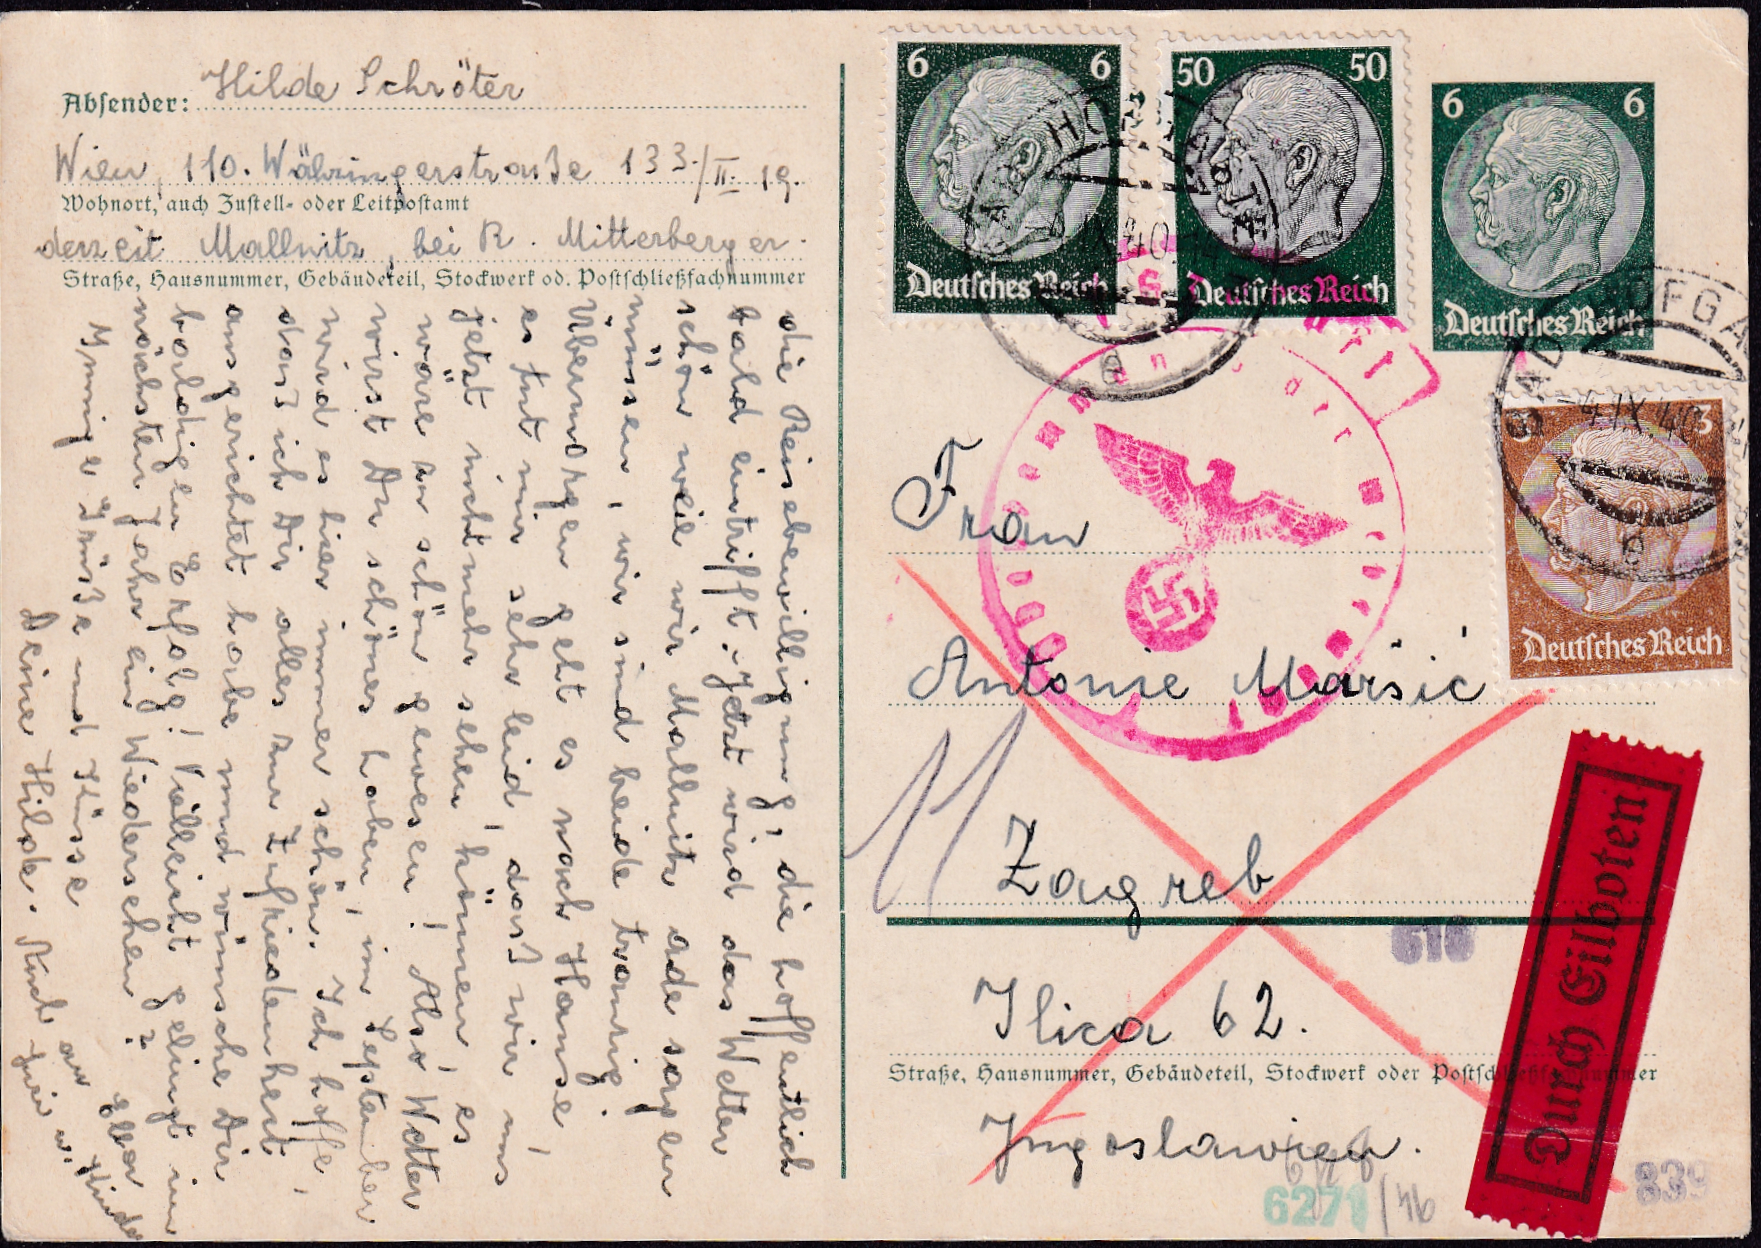 Absender: Hilde Schröter
Wien, 110. Währingerstraße 133/II. 19.
Wohnort, auch Zustell- oder Leitpostamt
derzeit Mallnitz, bei R. Mitterberger.
Straße, Hausnummer, Gebäudeteil, Stockwerk od. Postschließfachnummer
die Reisebewilligung, die hoffentlich
bald eintrifft. Jetzt wird das Wetter
schön weil wir Mallnitz ade sagen
müssen, wir sind beide traurig.
Übermorgen geht es nach Hause,
es tut mir sehr leid, dass wir uns
jetzt nicht mehr sehen können, es
wäre so schön gewesen! Also Wetter
wirst Du schönes haben, im September
wird es hier immer schön. Ich hoffe,
dass ich Dir alles zur Zufriedenheit
ausgerichtet habe und wünsche Dir
baldigen Erfolg! Vielleicht gelingt im
nächsten Jahr ein Wiedersehen?
Innige Grüße und Küsse
Deine Hilde.
6 6
Deutsches Reich
50 50
Deutsches Reich
6 6
Deutsches Reich
3
Deutsches Reich
-4.IX.40
e
Frau
Antonie Maršić
Zagreb
Ilica 62.
Straße, Hausnummer, Gebäudeteil, Stockwerk oder Postschließfachnummer
Jugoslawien.
Durch Eilboten
616
6271
/46
839